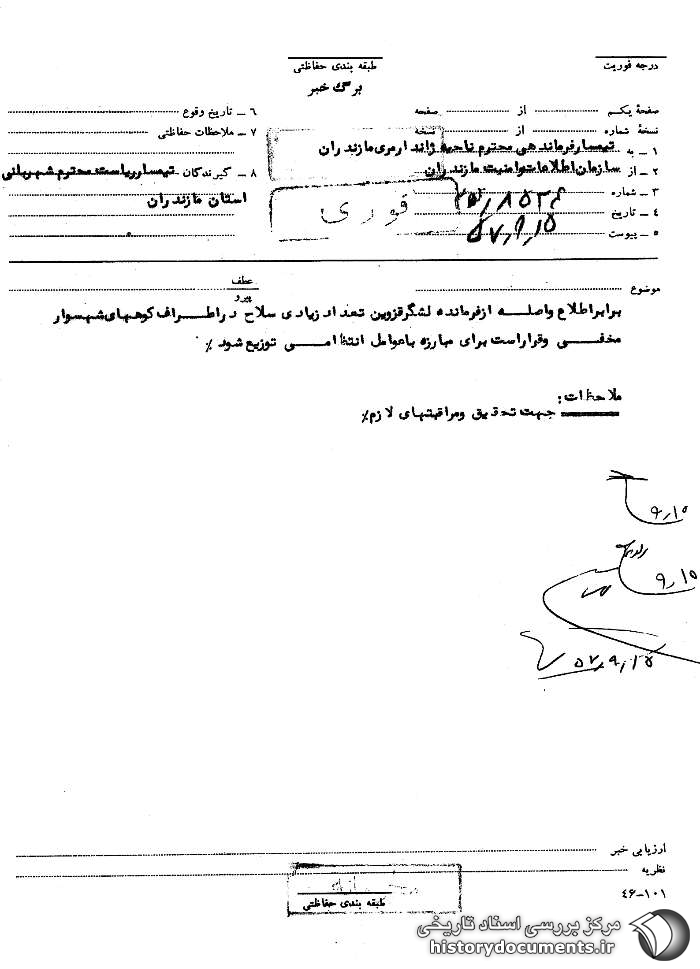 درجه فوریت
طبقه بندی حفاظتی
برگ خبر
صفحهٔ یکم از صفحه
نسخهٔ شماره از نسخه
۱ ـ به تیمسار فرماندهی محترم ناحیه ژاندارمری مازندران
۲ ـ از سازمان اطلاعات وامنیت مازندران
۳ ـ شماره
۴ ـ تاریخ ۵۷٫۹٫۱۵
۵ ـ پیوست
۶ ـ تاریخ وقوع
۷ ـ ملاحظات حفاظتی
۸ ـ گیرندگان تیمسار ریاست محترم شهربانی
استان مازندران
فوری
موضوع
عطف
پیرو
برابر اطلاع واصله از فرمانده لشگر قزوین تعداد زیادی سلاح در اطراف کوههای شهسوار
مخفی وقرار است برای مبارزه با عوامل انتظامی توزیع شود ٪
ملاحظات:
جهت تحقیق ومراقبتهای لازم٪
۹٫۱۵
۹٫۱۵
۵۷٫۹٫۱۵
ارزیابی خبر
نظریه
طبقه بندی حفاظتی
۴۶-۱۰۱
مرکز بررسی اسناد تاریخی
historydocuments.ir